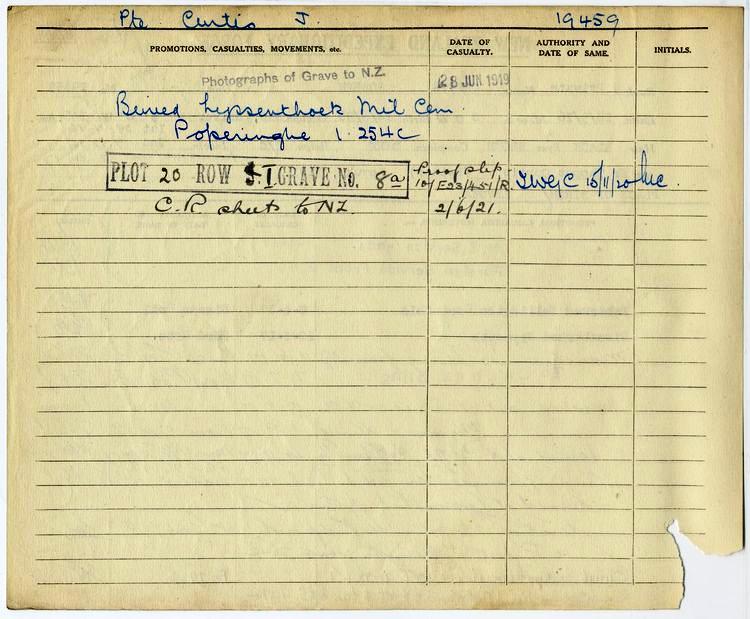 Pte Curtis J. 19459
PROMOTIONS, CASUALTIES, MOVEMENTS, etc. DATE OF CASUALTY. AUTHORITY AND DATE OF SAME. INITIALS.
Photographs of Grave to N.Z. 28 JUN 1919
Buried Lyssenthoek Mil Cem
Poperinghe 1. 254C
PLOT 20 ROW I GRAVE No. 8a Proof slip 10/E23/451/R. IWGC 15/11/20
C.R. sheets to NZ. 2/6/21.